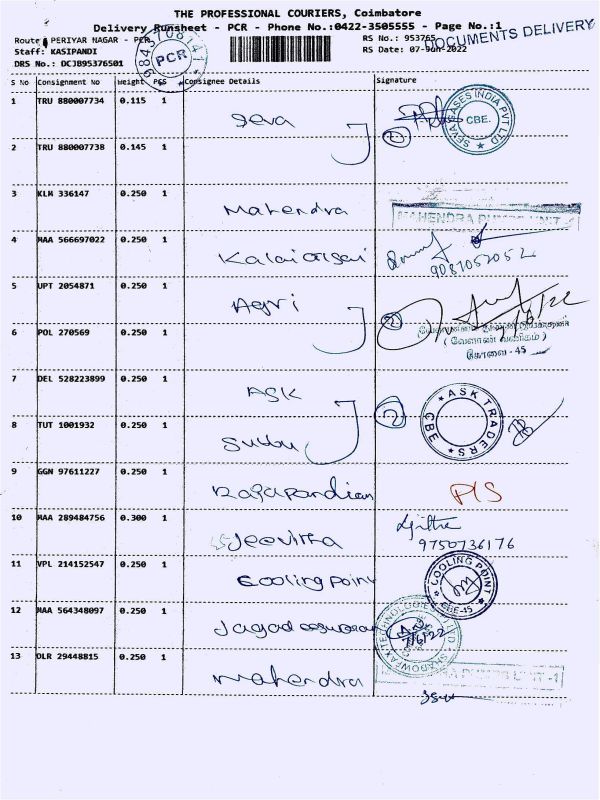 THE PROFESSIONAL COURIERS, Coimbatore
Delivery Runsheet - PCR - Phone No.:0422-3505555 - Page No.:1
Route: PERIYAR NAGAR - PCR
RS No.: 953765
DOCUMENTS DELIVERY
Staff: KASIPANDI
RS Date: 07-Jun-2022
DRS No.: DCJB95376501
PCR
S No Consignment No Weight PCS Consignee Details Signature
1 TRU 880007734 0.115 1 Seva
SEVA GASES INDIA PVT LTD CBE.
2 TRU 880007738 0.145 1 2
3 KLM 336147 0.250 1 Mahendra MAHENDRA PUMPS UNIT-1
4 MAA 566697022 0.250 1 Kalaiarasi 9087052052
5 UPT 2054871 0.250 1 Agri 2 7/6/22
6 POL 270569 0.250 1
( வேளாண் வணிகம் )
கோவை - 45
7 DEL 528223899 0.250 1 ASK 2 ASK TRADERS CBE
8 TUT 1001932 0.250 1 Subbu
9 GGN 97611227 0.250 1 Rajapandian P/S
10 MAA 289484756 0.300 1 Jeevitha
9750736176
11 VPL 214152547 0.250 1 Cooling point COOLING POINT CBE-45
12 MAA 564348097 0.250 1 Jagadeeswaran SHADOWFAX TECHNOLOGIES 7/6/22
13 DLR 29448815 0.250 1 Mahendra PUMPS UNIT-1